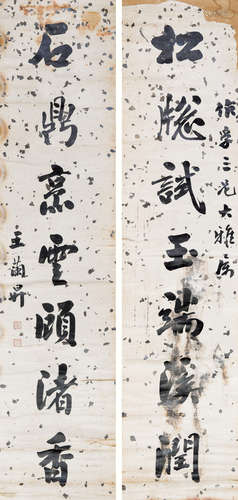 松牕試玉端溪潤
作孚三兄大雅属
石鼎烹雲顧渚香
王蘭昇